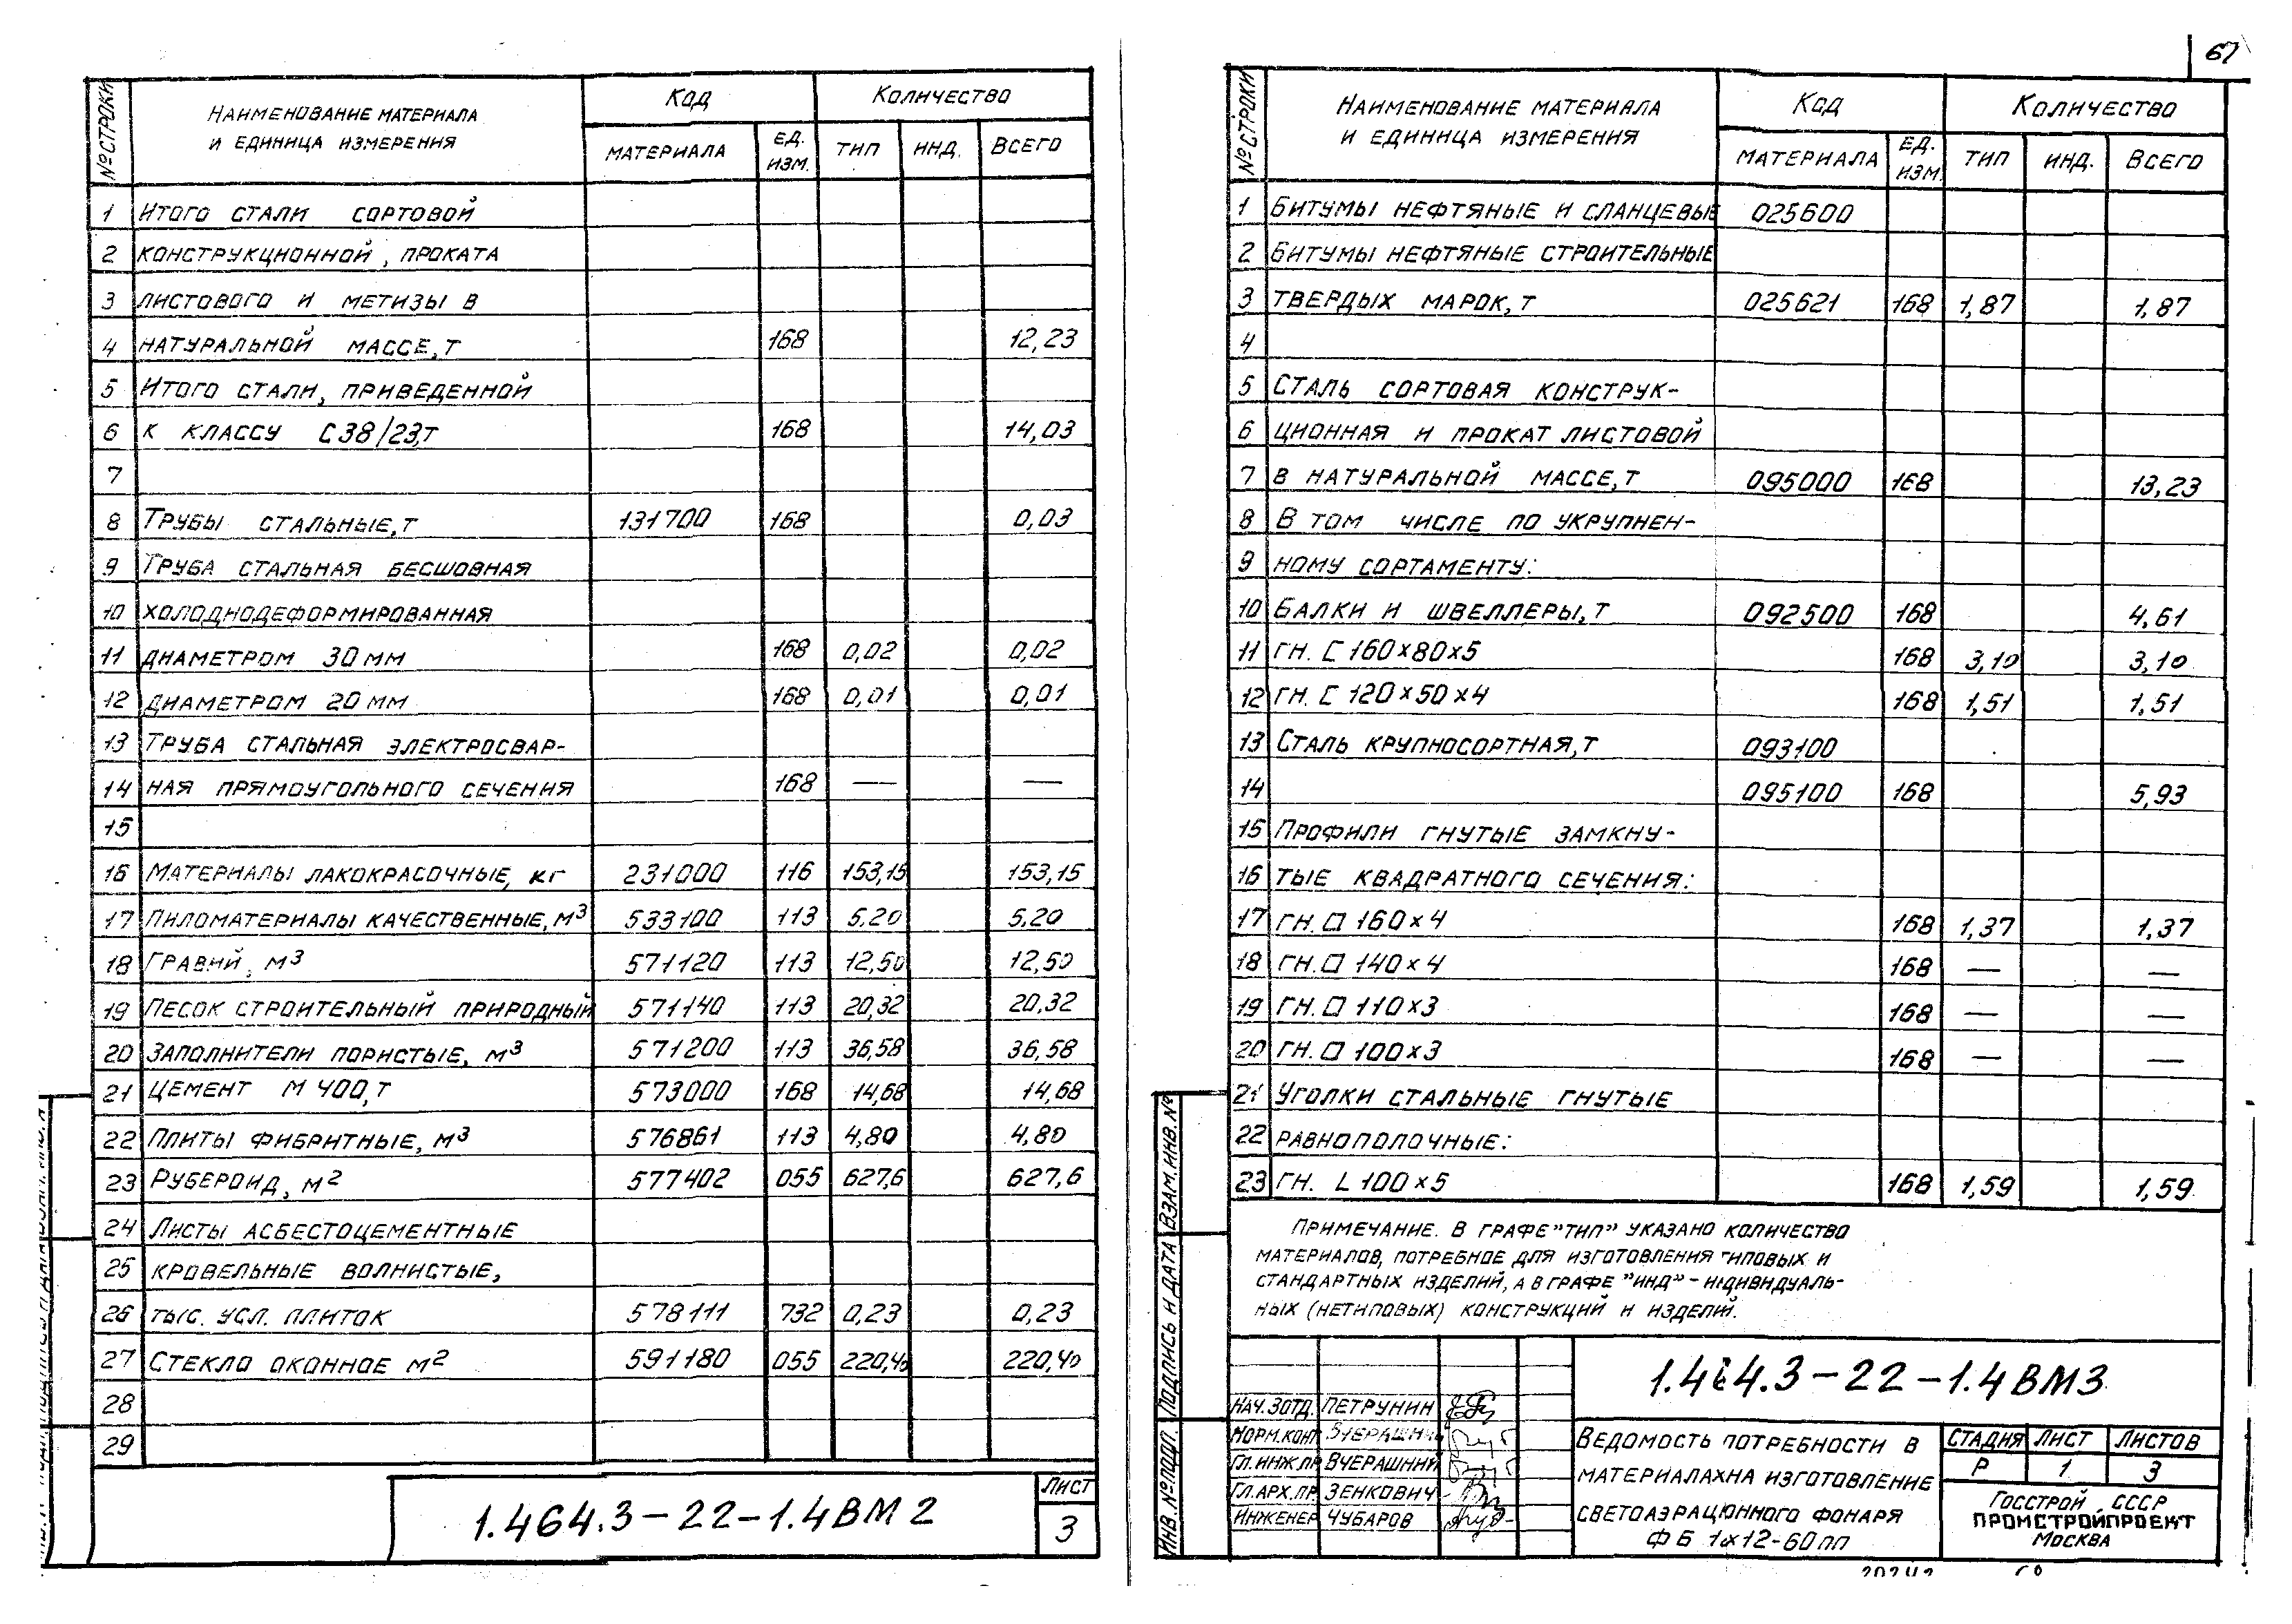 67
№ СТРОКИ
НАИМЕНОВАНИЕ МАТЕРИАЛА
И ЕДИНИЦА ИЗМЕРЕНИЯ
КОД
КОЛИЧЕСТВО
МАТЕРИАЛА
ЕД. ИЗМ.
ТИП
ИНД.
ВСЕГО
1 ИТОГО СТАЛИ СОРТОВОЙ
2 КОНСТРУКЦИОННОЙ, ПРОКАТА
3 ЛИСТОВОГО И МЕТИЗЫ В
4 НАТУРАЛЬНОЙ МАССЕ, Т 168 12,23
5 ИТОГО СТАЛИ, ПРИВЕДЕННОЙ
6 К КЛАССУ С38/23,Т 168 14,03
7
8 ТРУБЫ СТАЛЬНЫЕ, Т 131700 168 0,03
9 ТРУБА СТАЛЬНАЯ БЕСШОВНАЯ
10 ХОЛОДНОДЕФОРМИРОВАННАЯ
11 ДИАМЕТРОМ 30 ММ 168 0,02 0,02
12 ДИАМЕТРОМ 20 ММ 168 0,01 0,01
13 ТРУБА СТАЛЬНАЯ ЭЛЕКТРОСВАР-
14 НАЯ ПРЯМОУГОЛЬНОГО СЕЧЕНИЯ 168 — —
15
16 МАТЕРИАЛЫ ЛАКОКРАСОЧНЫЕ, КГ 231000 116 153,15 153,15
17 ПИЛОМАТЕРИАЛЫ КАЧЕСТВЕННЫЕ, М³ 533100 113 5,20 5,20
18 ГРАВИЙ, М³ 571120 113 12,50 12,50
19 ПЕСОК СТРОИТЕЛЬНЫЙ ПРИРОДНЫЙ 571140 113 20,32 20,32
20 ЗАПОЛНИТЕЛИ ПОРИСТЫЕ, М³ 571200 113 36,58 36,58
21 ЦЕМЕНТ М 400, Т 573000 168 14,68 14,68
22 ПЛИТЫ ФИБРИТНЫЕ, М³ 576861 113 4,80 4,80
23 РУБЕРОИД, М² 577402 055 627,6 627,6
24 ЛИСТЫ АСБЕСТОЦЕМЕНТНЫЕ
25 КРОВЕЛЬНЫЕ ВОЛНИСТЫЕ,
26 ТЫС. УСЛ. ПЛИТОК 578111 732 0,23 0,23
27 СТЕКЛО ОКОННОЕ М² 591180 055 220,40 220,40
28
29
1.464.3-22-1.4ВМ2
ЛИСТ
3
№ СТРОКИ
НАИМЕНОВАНИЕ МАТЕРИАЛА
И ЕДИНИЦА ИЗМЕРЕНИЯ
КОД
КОЛИЧЕСТВО
МАТЕРИАЛА
ЕД. ИЗМ.
ТИП
ИНД.
ВСЕГО
1 БИТУМЫ НЕФТЯНЫЕ И СЛАНЦЕВЫЕ 025600
2 БИТУМЫ НЕФТЯНЫЕ СТРОИТЕЛЬНЫЕ
3 ТВЕРДЫХ МАРОК, Т 025621 168 1,87 1,87
4
5 СТАЛЬ СОРТОВАЯ КОНСТРУК-
6 ЦИОННАЯ И ПРОКАТ ЛИСТОВОЙ
7 В НАТУРАЛЬНОЙ МАССЕ, Т 095000 168 13,23
8 В ТОМ ЧИСЛЕ ПО УКРУПНЕН-
9 НОМУ СОРТАМЕНТУ:
10 БАЛКИ И ШВЕЛЛЕРЫ, Т 092500 168 4,61
11 ГН. [ 160×80×5 168 3,10 3,10
12 ГН. [ 120×50×4 168 1,51 1,51
13 СТАЛЬ КРУПНОСОРТНАЯ, Т 093100
14 095100 168 5,93
15 ПРОФИЛИ ГНУТЫЕ ЗАМКНУ-
16 ТЫЕ КВАДРАТНОГО СЕЧЕНИЯ:
17 ГН. □ 160×4 168 1,37 1,37
18 ГН. □ 140×4 168 — —
19 ГН. □ 110×3 168 — —
20 ГН. □ 100×3 168 — —
21 УГОЛКИ СТАЛЬНЫЕ ГНУТЫЕ
22 РАВНОПОЛОЧНЫЕ:
23 ГН. L 100×5 168 1,59 1,59
ПРИМЕЧАНИЕ. В ГРАФЕ "ТИП" УКАЗАНО КОЛИЧЕСТВО
МАТЕРИАЛОВ, ПОТРЕБНОЕ ДЛЯ ИЗГОТОВЛЕНИЯ ТИПОВЫХ И
СТАНДАРТНЫХ ИЗДЕЛИЙ, А В ГРАФЕ "ИНД" - ИНДИВИДУАЛЬ-
НЫХ (НЕТИПОВЫХ) КОНСТРУКЦИЙ И ИЗДЕЛИЙ.
ИНВ. № ПОДЛ. ПОДПИСЬ И ДАТА ВЗАМ. ИНВ. №
НАЧ. ЗОТД. ПЕТРУНИН
НОРМ. КОНТ ВЧЕРАШНИЙ
ГЛ. ИНЖ. ПР ВЧЕРАШНИЙ
ГЛ. АРХ. ПР. ЗЕНКОВИЧ
ИНЖЕНЕР ЧУБАРОВ
1.464.3-22-1.4ВМ3
ВЕДОМОСТЬ ПОТРЕБНОСТИ В
МАТЕРИАЛАХ НА ИЗГОТОВЛЕНИЕ
СВЕТОАЭРАЦИОННОГО ФОНАРЯ
ФБ 1×12-60пп
СТАДИЯ ЛИСТ ЛИСТОВ
Р 1 3
ГОССТРОЙ СССР
ПРОМСТРОЙПРОЕКТ
МОСКВА